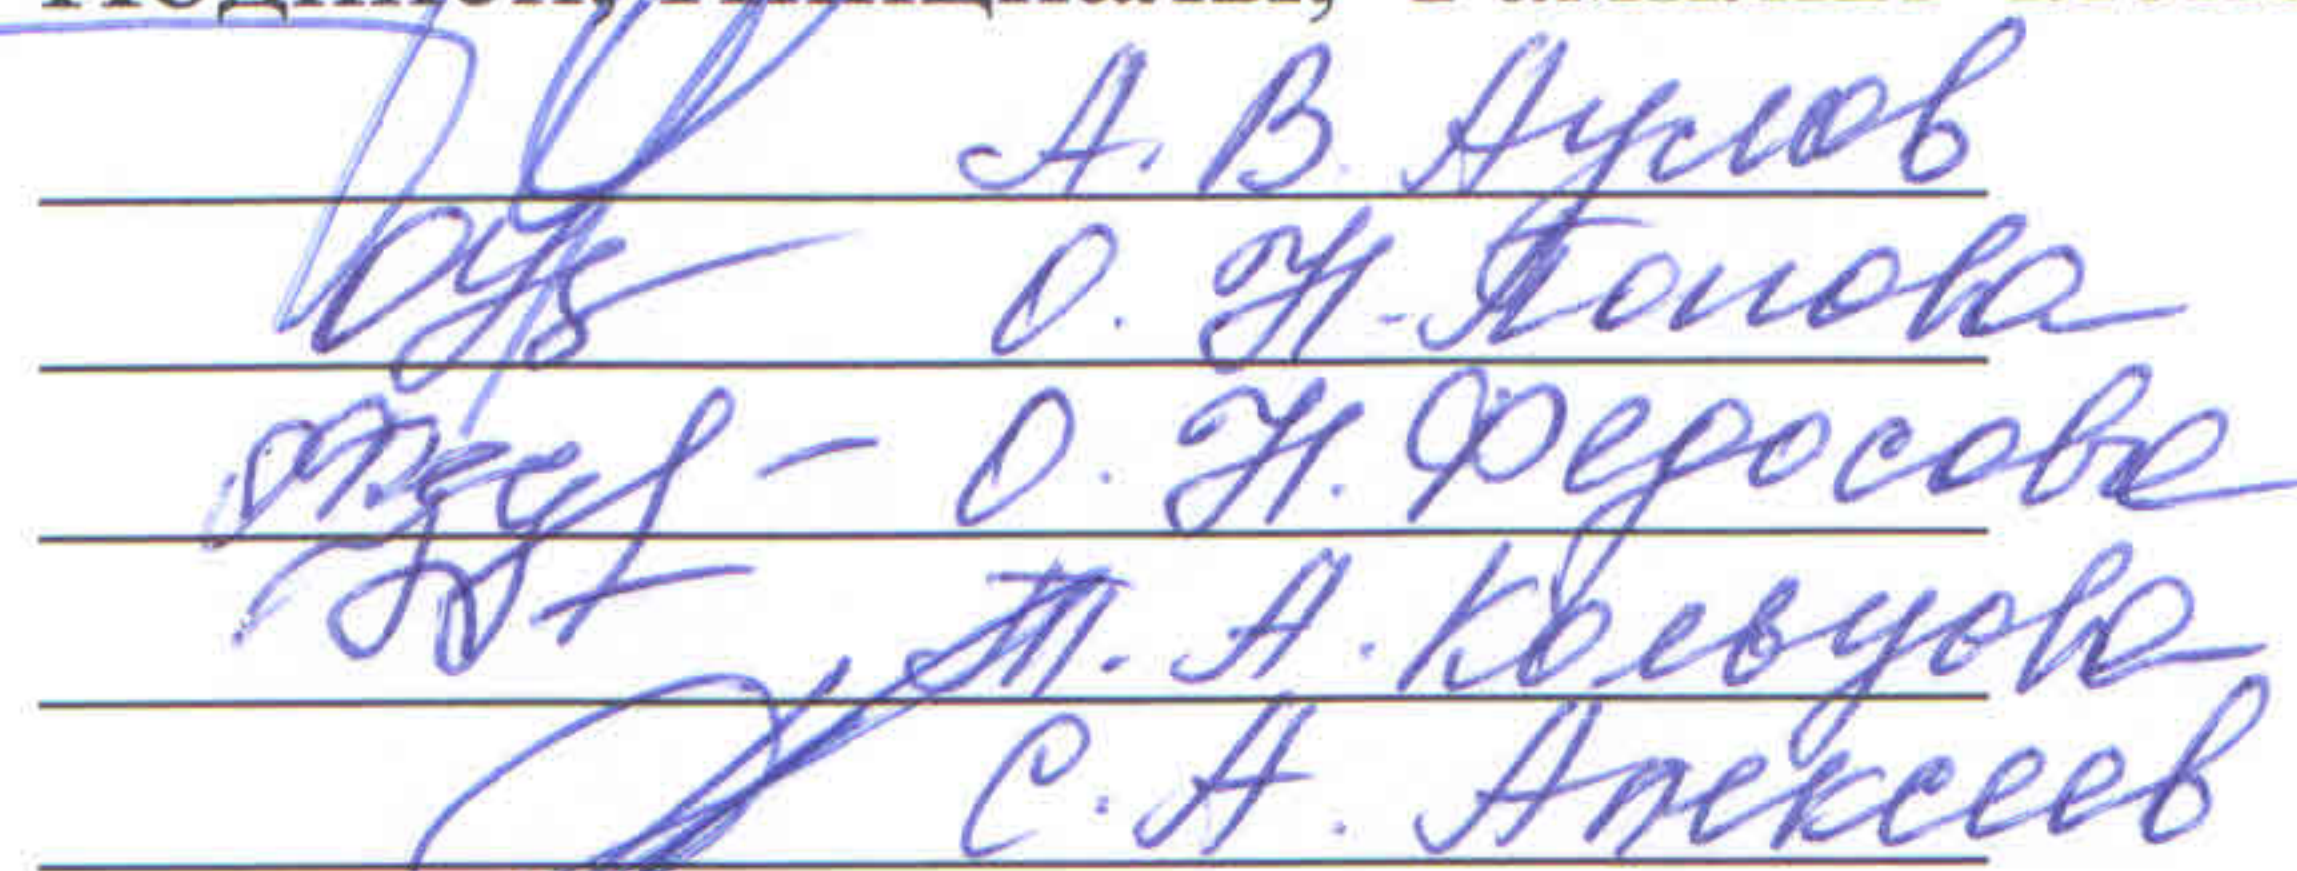 А. В. Аулов
О. Н. Попова
О. Н. Федосова
Т. А. Кольцова
С. А. Алексеев